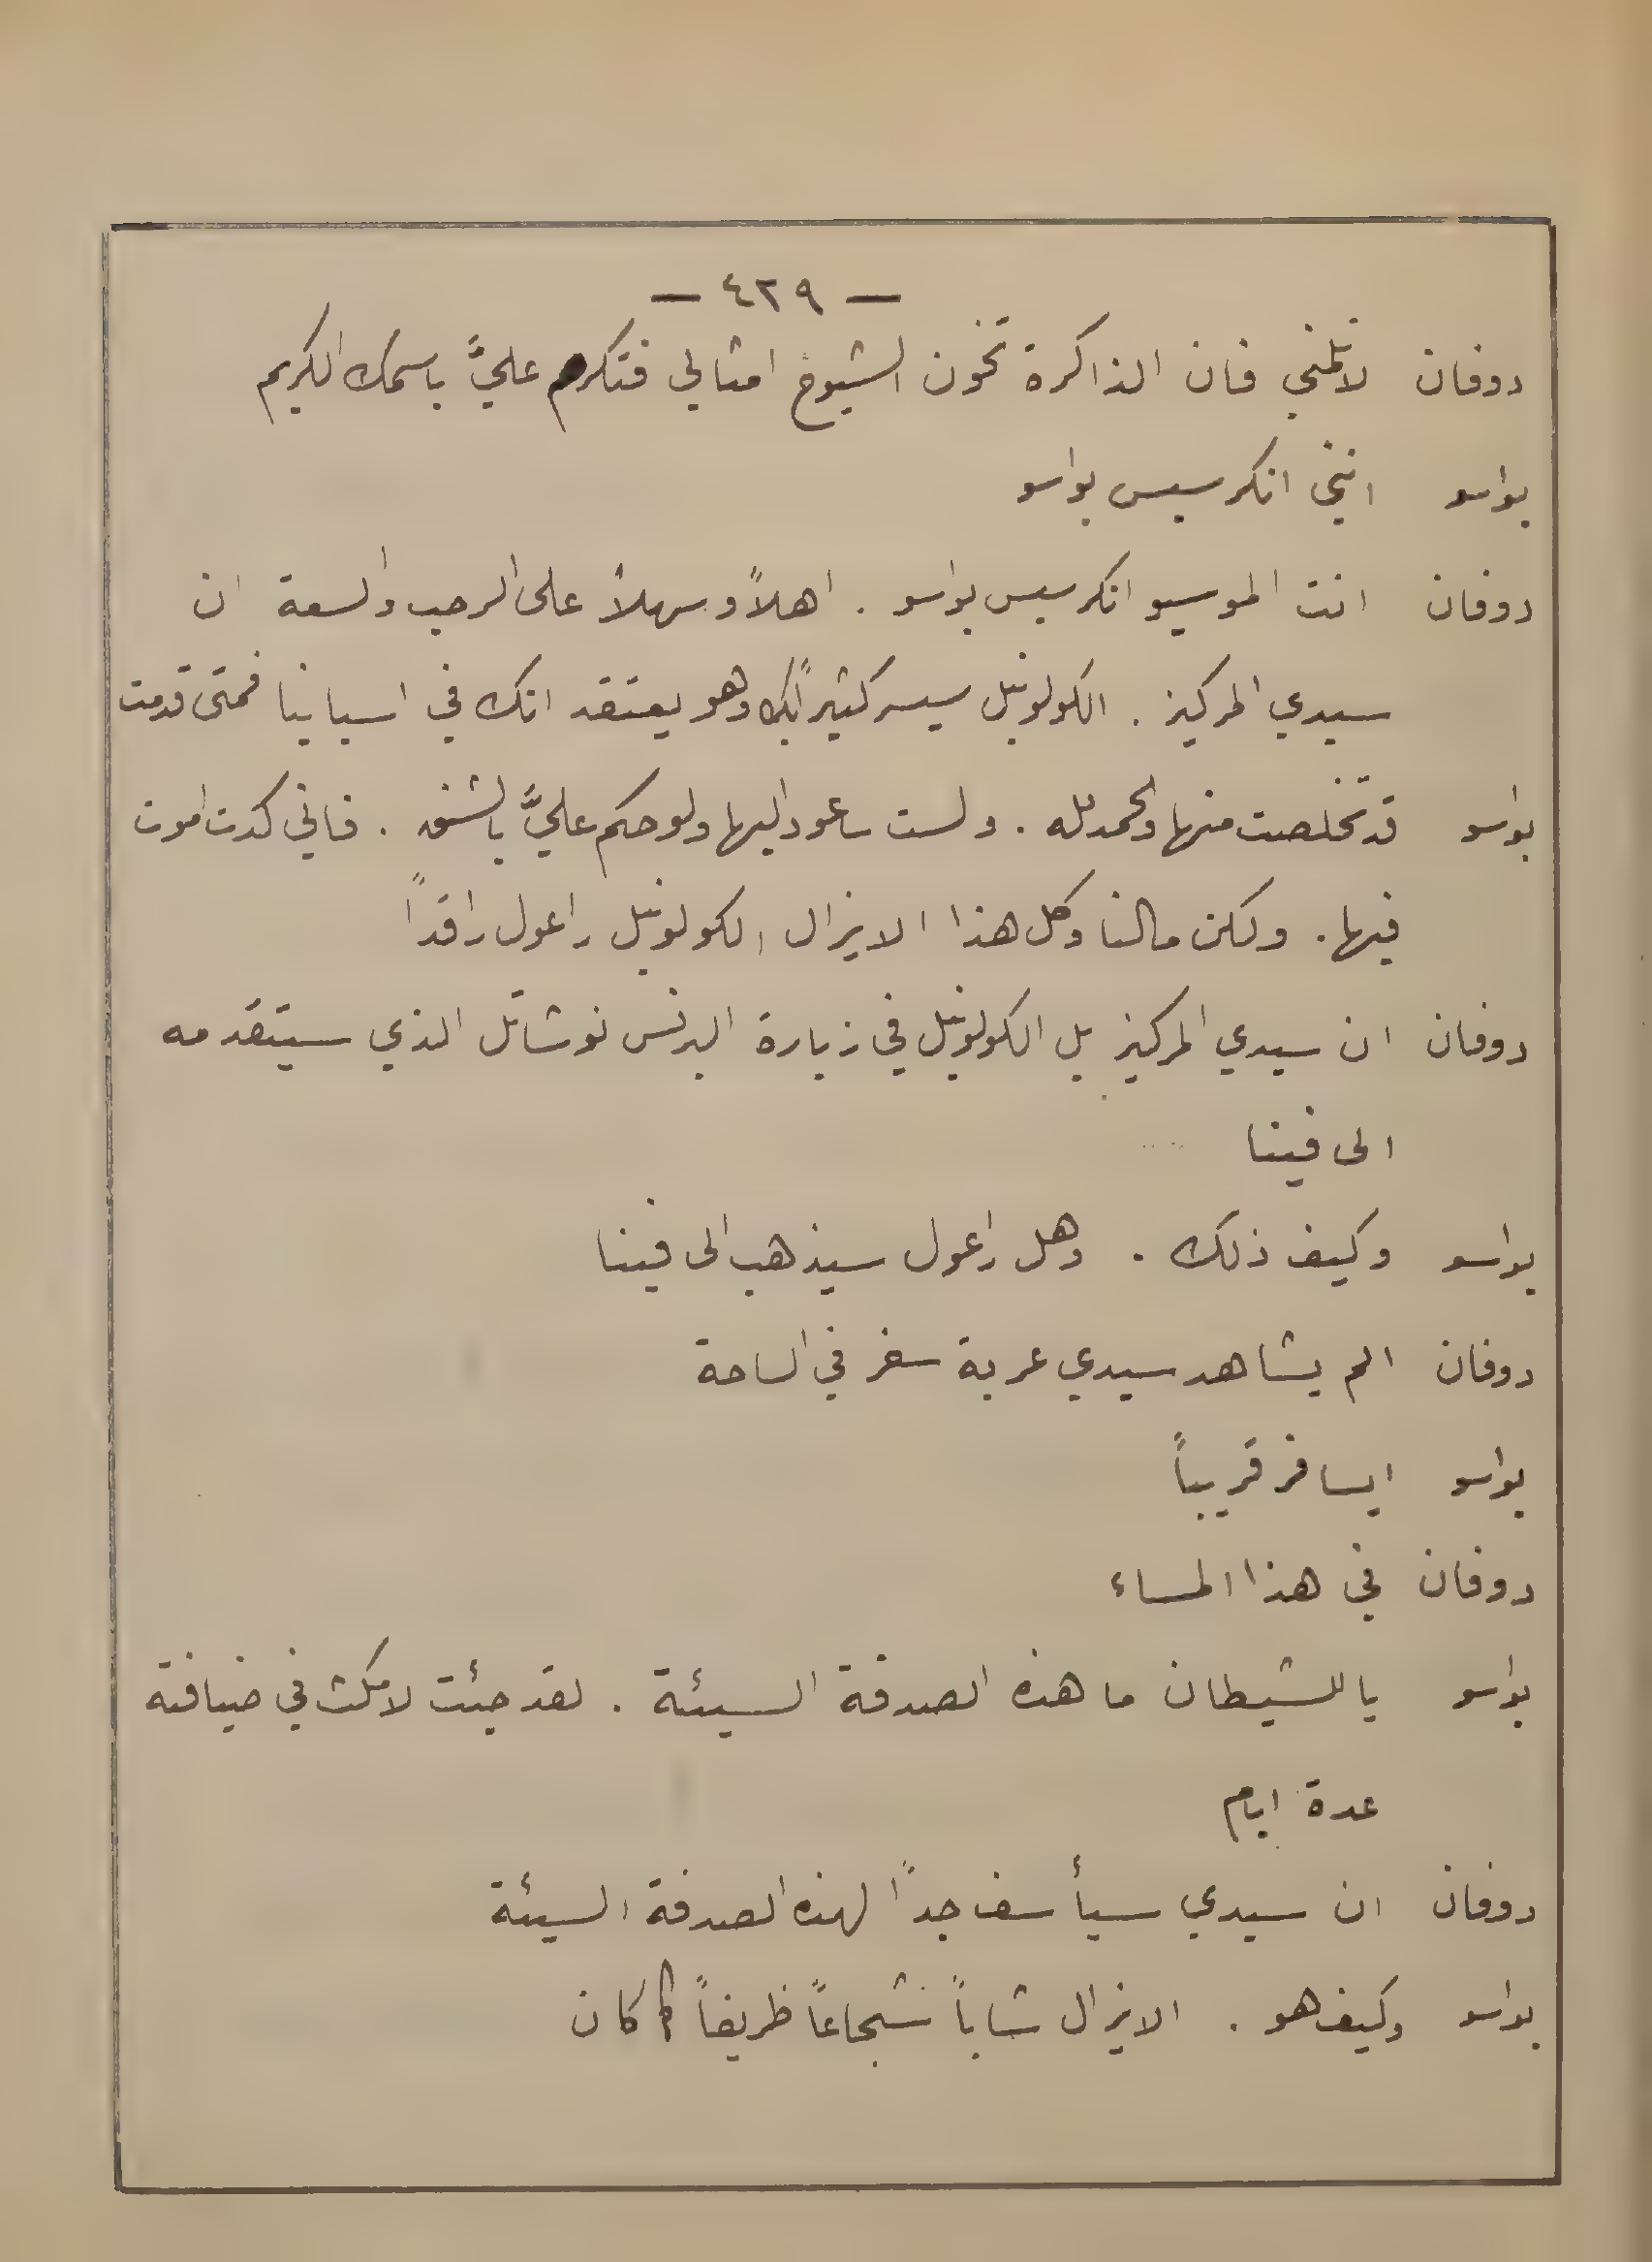 — ٤٢٩ —
دوفان لا تلمني فان الذاكرة تخون الشيوخ امثالي فتكرم عليَّ باسمك الكريم
بواسو انني انكرسيس بواسو
دوفان انت الموسيو انكرسيس بواسو . اهلاً وسهلاً على الرحب والسعة ان
سيدي المركيز . الكولونيل سيسر كثيراً بك وهو يعتقد انك في اسبانيا فمتى قدمت
بواسو قد تخلصت منها والحمد لله . ولست ساعود اليها ولو حكم عليَّ بالشنق . فاني كدت اموت
فيها . ولكن مالنا وكل هذا الا يزال الكولونيل راعول راقداً
دوفان ان سيدي المركيز بل الكولونيل في زيارة البرنس نوشاتل الذي سيتقدمه
الى فيينا
بواسو وكيف ذلك . وهل راعول سيذهب الى فيينا
دوفان الم يشاهد سيدي عربة سفر في الساحة
بواسو ايسافر قريباً
دوفان في هذا المساء
بواسو يا للشيطان ما هذه الصدفة السيئة . لقد جئت لامكث في ضيافته
عدة ايام
دوفان ان سيدي سيأسف جداً لهذه الصدفة السيئة
بواسو وكيف هو . الا يزال شاباً شجاعاً ظريفاً كما كان